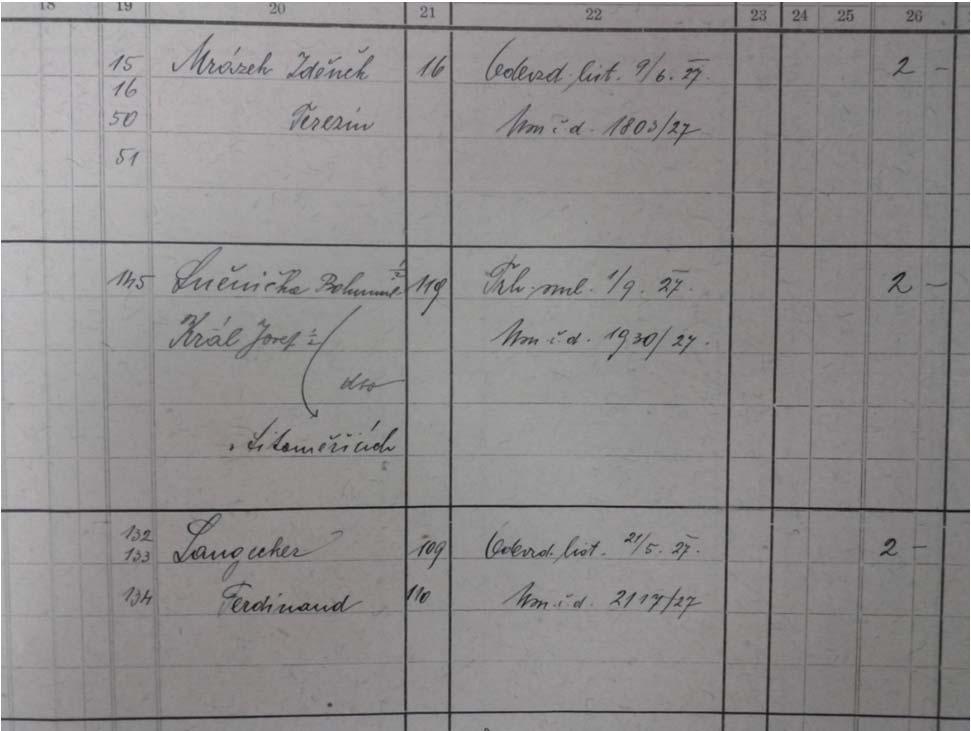 18 19 20 21 22 23 24 25 26
15 Mrázek Zdeněk 16 Odevzd. list. 9/6. 27. 2 -
16
50 Terezín Um. č. d. 1803/27
51
145 Lučnička Bohumil 1/2 119 Trh. sml. 1/9. 27. 2 -
Král Josef 1/2 Um. č. d. 1930/27.
dto
Litoměřicích
132
133 Langecker 109 Odevzd. list. 21/5. 27. 2 -
134 Ferdinand 110 Um. č. d. 2117/27